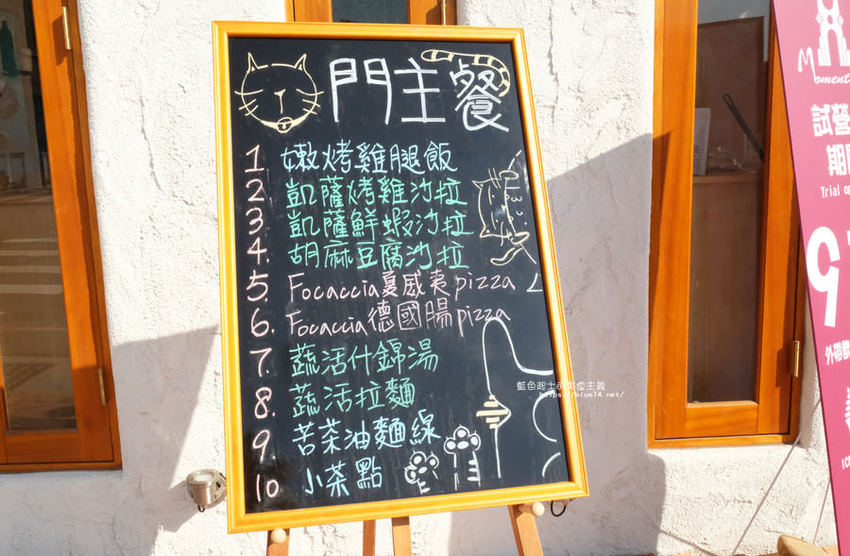 門主餐
1 嫩烤雞腿飯
2 凱薩烤雞沙拉
3. 凱薩鮮蝦沙拉
4. 胡麻豆腐沙拉
5. Focaccia夏威夷pizza
6. Focaccia德國腸pizza
7. 蔬活什錦湯
8. 蔬活拉麵
9 苦茶油麵線
10 小茶點
藍色起士的美食主義
https://blue74.net/
Moment
試營
期間
Trial op
9
外帶飲